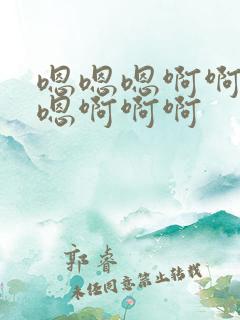 嗯嗯嗯啊啊
嗯啊啊啊
郭睿
未经同意禁止转载